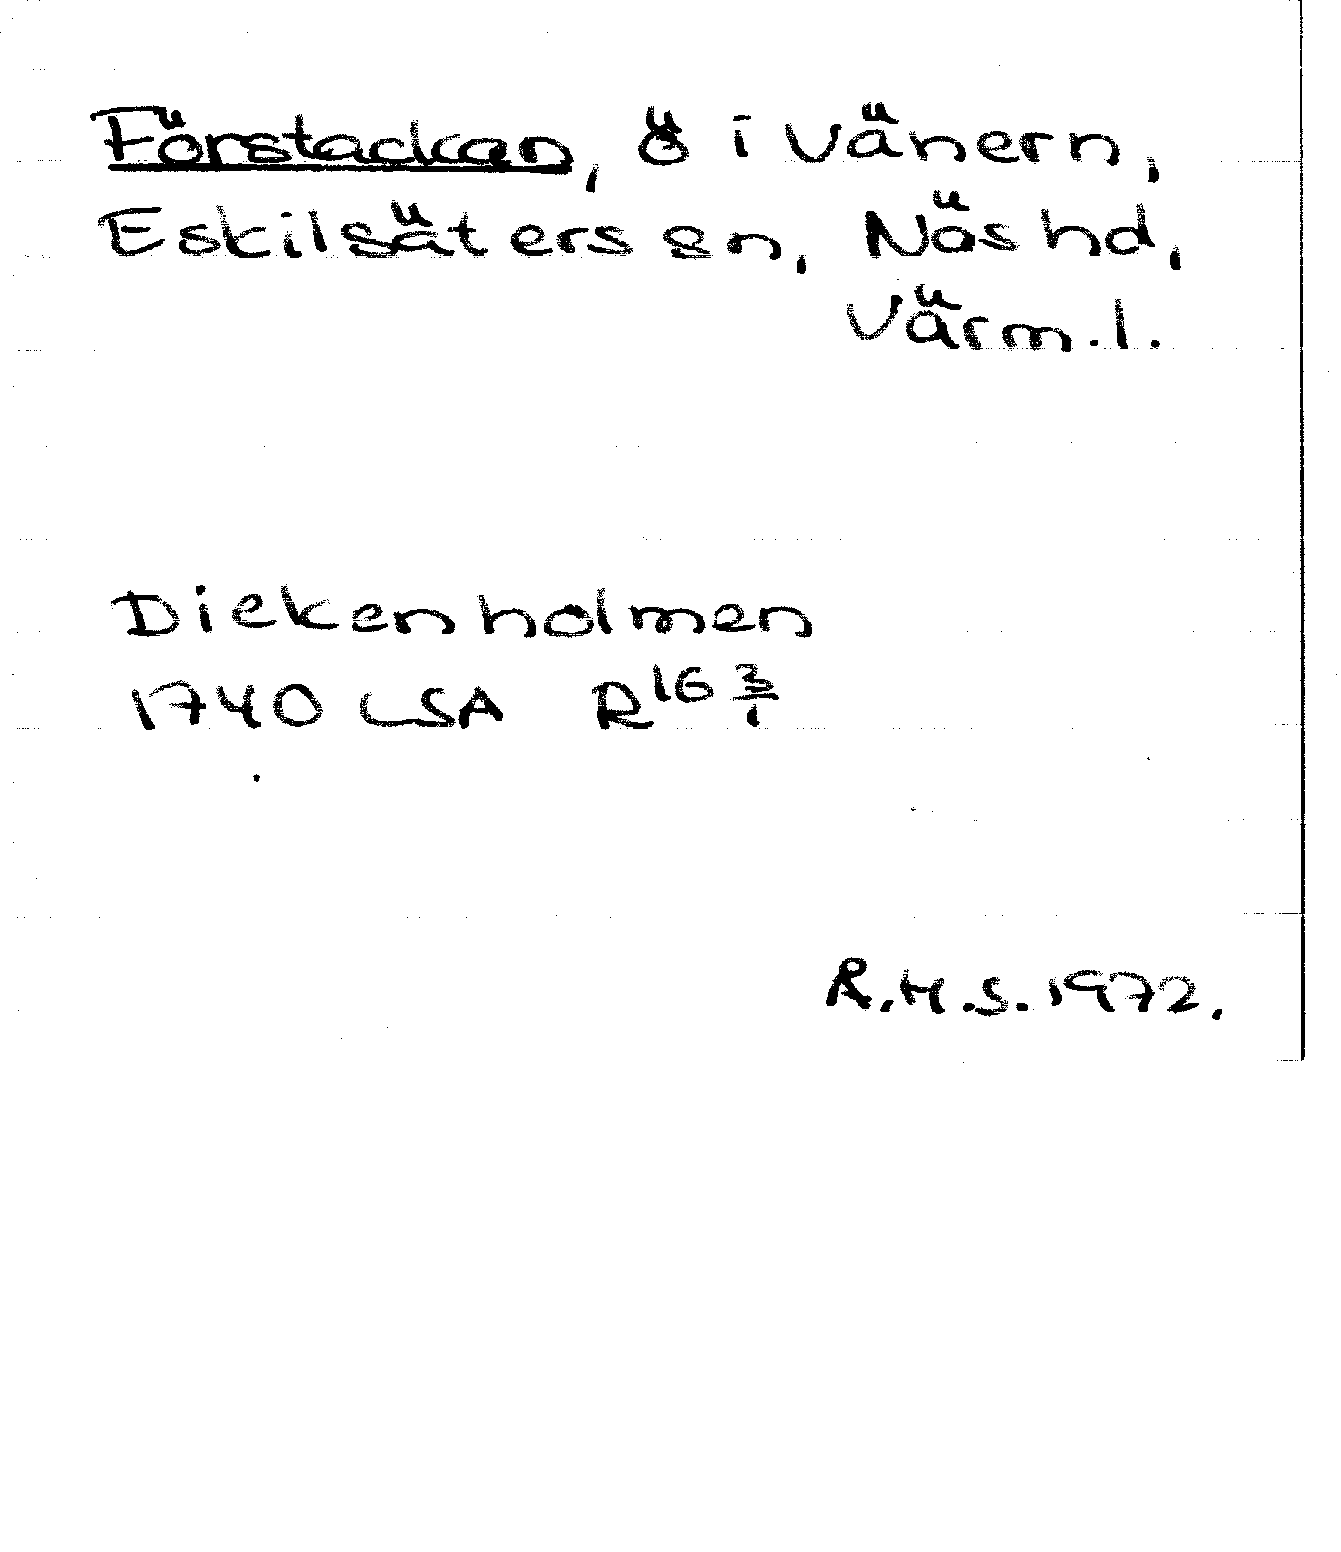 Förstackan, ö i Vänern,
Eskilsäters sn, Näs hd,
Värml.
Diekenholmen
1740 LSA R16 3/1
R.H.S. 1972.